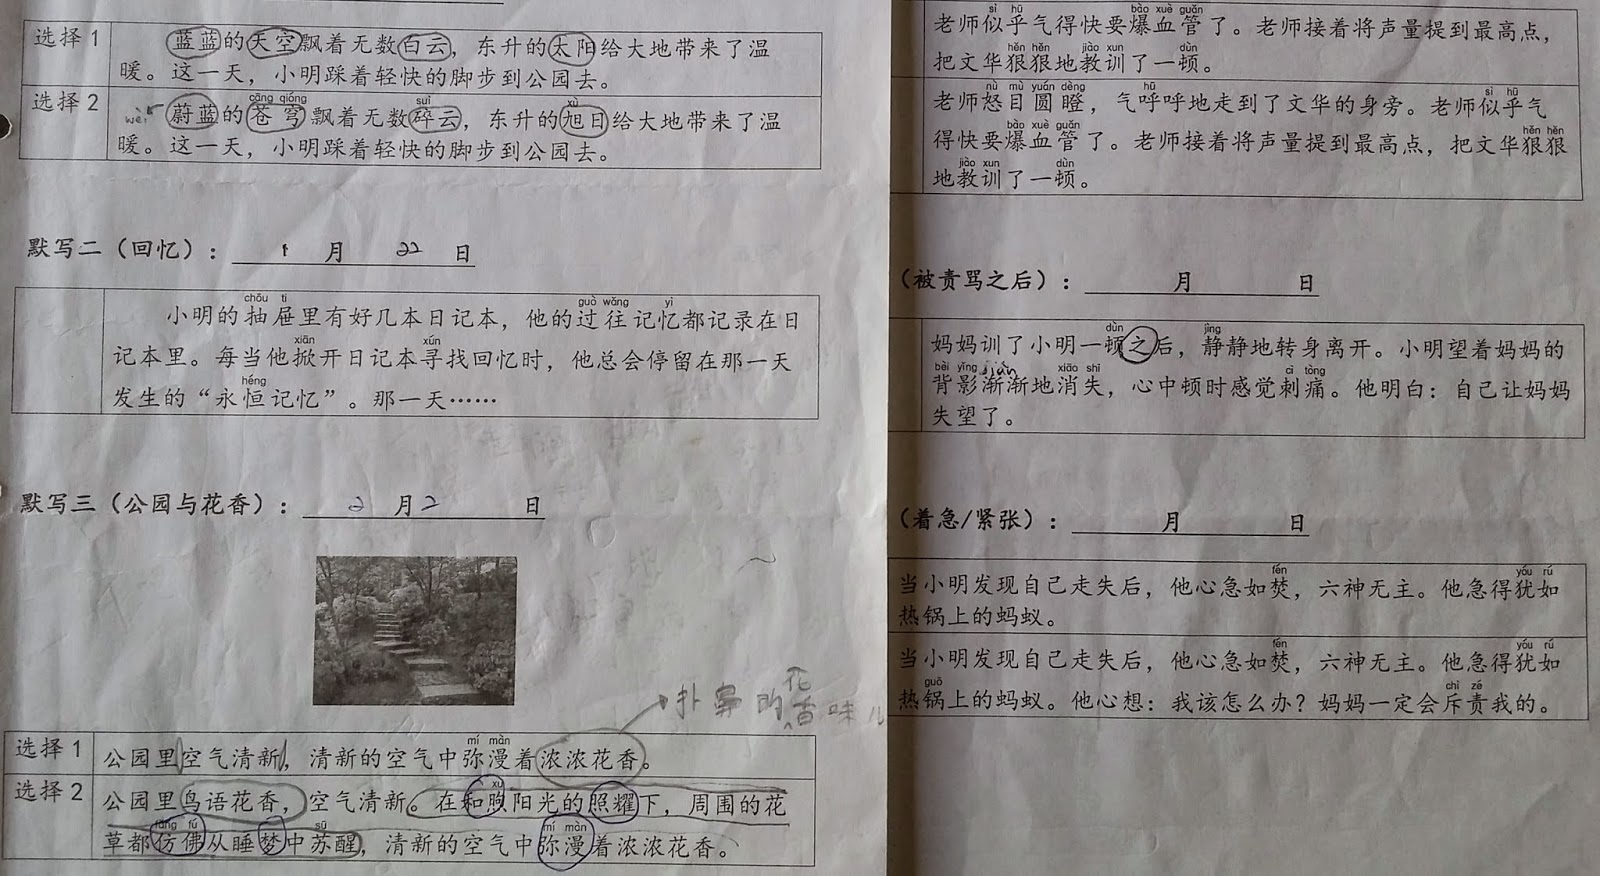 选择1
蓝蓝的天空飘着无数白云，东升的太阳给大地带来了温
暖。这一天，小明踩着轻快的脚步到公园去。
选择2
cāng qióng suì xù
wèi 蔚蓝的苍穹飘着无数碎云，东升的旭日给大地带来了温
暖。这一天，小明踩着轻快的脚步到公园去。
默写二（回忆）： 1 月 22 日
chōu tì guò wǎng yì
小明的抽屉里有好几本日记本，他的过往记忆都记录在日
xiān xún
记本里。每当他掀开日记本寻找回忆时，他总会停留在那一天
héng
发生的“永恒记忆”。那一天……
默写三（公园与花香）： 2 月 2 日
扑鼻的花香味儿
选择1
mí màn
公园里空气清新，清新的空气中弥漫着浓浓花香。
选择2
xù
公园里鸟语花香，空气清新。在和煦阳光的照耀下，周围的花
fǎng fú sū mí màn
草都仿佛从睡梦中苏醒，清新的空气中弥漫着浓浓花香。
sì hū bào xuè guǎn
老师似乎气得快要爆血管了。老师接着将声量提到最高点，
hěn hěn jiào xun dùn
把文华狠狠地教训了一顿。
nù mù yuán dèng hū sì hū
老师怒目圆瞪，气呼呼地走到了文华的身旁。老师似乎气
bào xuè guǎn hěn hěn
得快要爆血管了。老师接着将声量提到最高点，把文华狠狠
jiào xun dùn
地教训了一顿。
（被责骂之后）： 月 日
dùn jìng
妈妈训了小明一顿之后，静静地转身离开。小明望着妈妈的
bèi yǐng jiàn xiāo shī cì tòng
背影渐渐地消失，心中顿时感觉刺痛。他明白：自己让妈妈
失望了。
（着急/紧张）： 月 日
fén yóu rú
当小明发现自己走失后，他心急如焚，六神无主。他急得犹如
热锅上的蚂蚁。
fén yóu rú
当小明发现自己走失后，他心急如焚，六神无主。他急得犹如
guō chì zé
热锅上的蚂蚁。他心想：我该怎么办？妈妈一定会斥责我的。